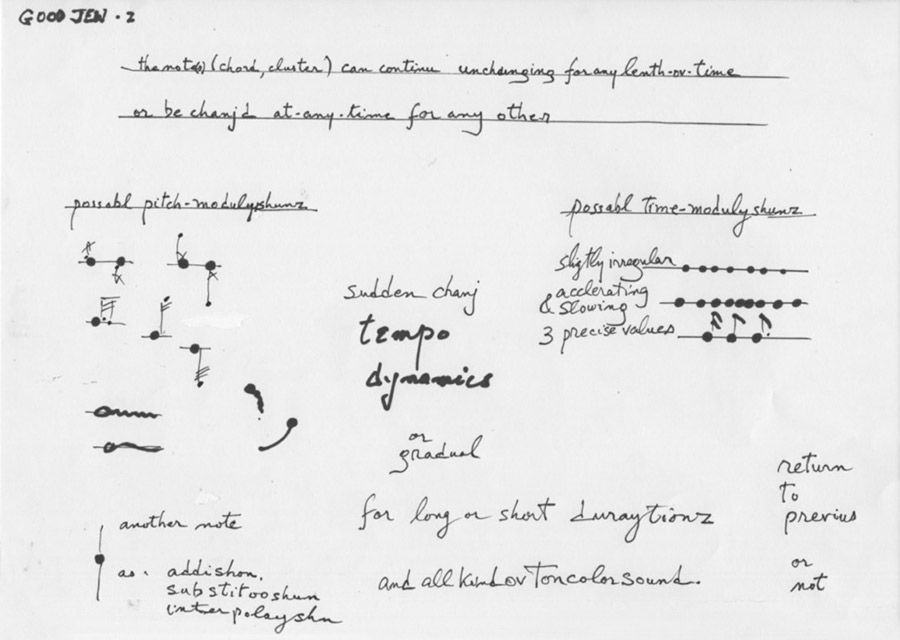 GOOD JEN · 2
the note(s) (chord, cluster) can continu unchanging for any lenth-ov-time
or be chanj'd at-any-time for any other
possabl pitch-modulyshunz
possabl time-modulyshunz
sligtly irregular
acclerating
& slowing
3 precise values
sudden chanj
tempo
dynamics
or
gradual
for long or short duraytionz
and all kind ov Toncolorsound.
another note
as · addishon,
substitooshun
interpolayshn
return
to
previus
or
not